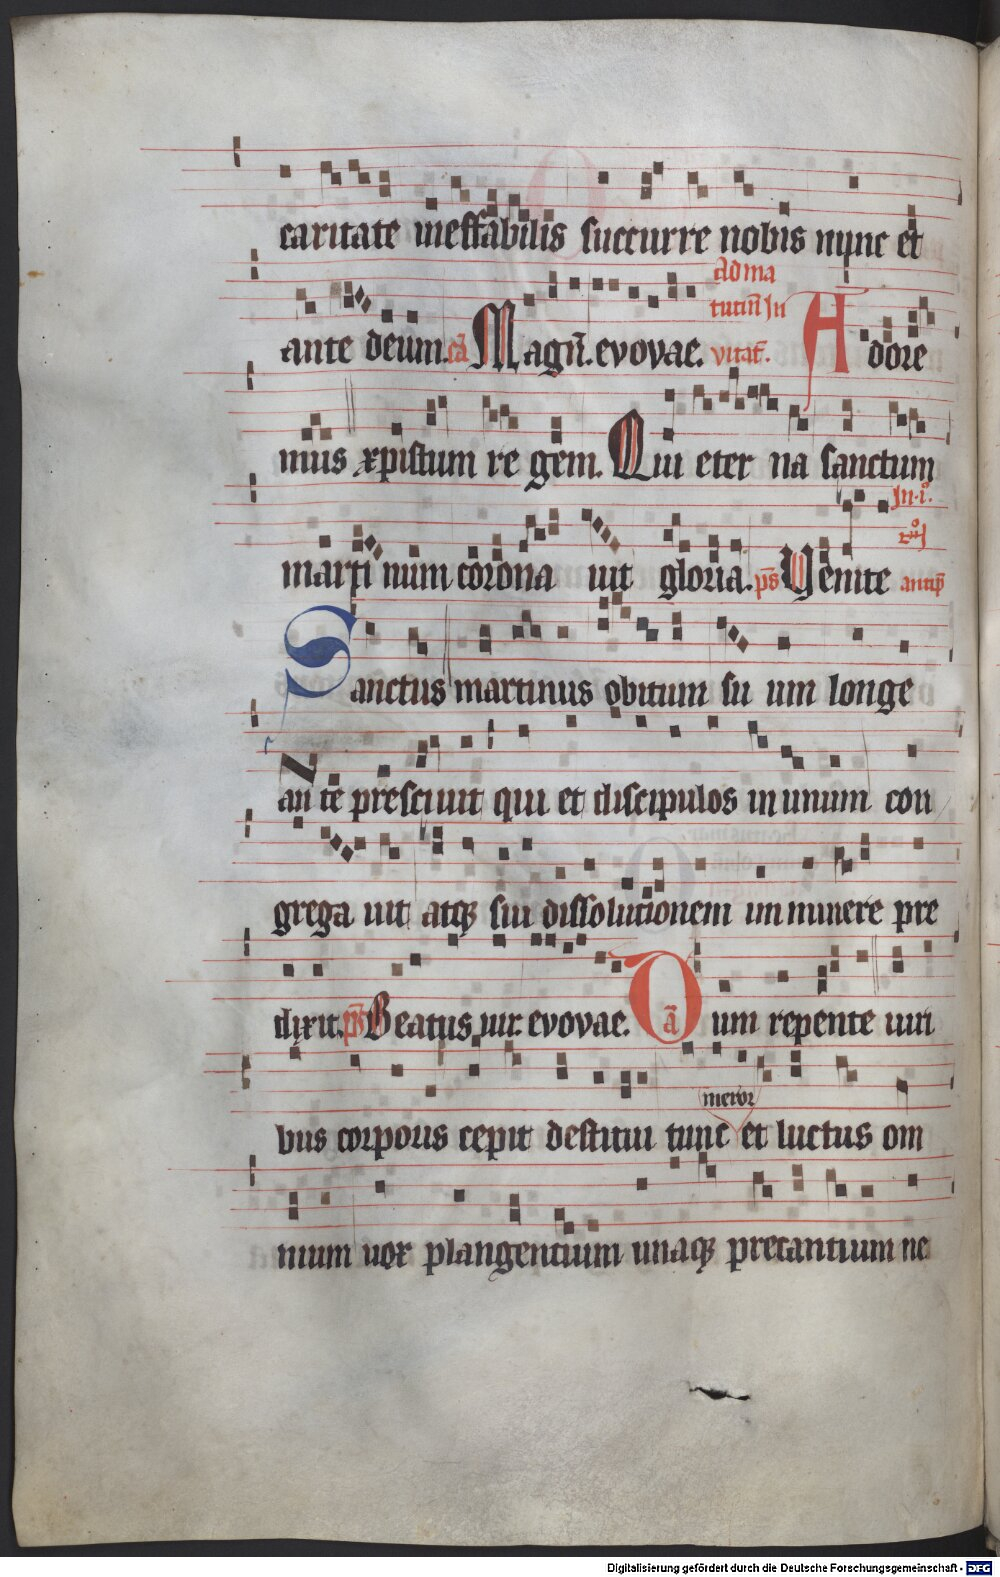 caritate ineffabilis succurre nobis nunc et
Ad ma
tutiñ In
ante deum. cã Magñ. evovae. vitat̃. Adore
mus xpistum re gem. Qui eter na sanctum
In .i°.
martinum corona uit gloria. ps̃ Venite antip̃
Sanctus martinus obitum su um longe
an te presciuit qui et discipulos in unum con
grega uit atqꝫ sui dissolutionem imminere pre
dixit. ps̃ Beatus uir. evovae. ã Dum repente uiri
meror
bus corporis cepit destitui tunc et luctus om
nium uox plangentium unaqꝫ precantium ne
Digitalisierung gefördert durch die Deutsche Forschungsgemeinschaft - DFG